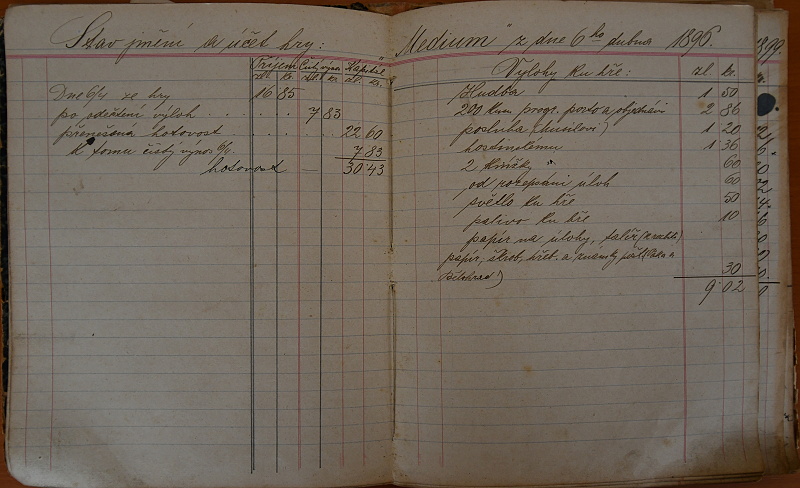 Stav jmění a účet hry:
Příjem Čistý výnos Kapitál
zl. kr. zl. kr. zl. kr.
Dne 6/4 ze hry 16 85
po odečtení výloh . . . . . 7 83
přenešená hotovost . . . . . 22 60
k tomu čistý výnos 6/4 7 83
hotovost 30 43
"Medium" z dne 6ho dubna 1896.
Výlohy ku hře: zl. kr.
Hudba 1 50
200 kusů progr. porto a objednání 2 86
posluha 1 20
hostinskému 1 36
2 60
od rozepsání úloh 60
světlo ku hře 50
palivo ku hře 10
papír na úlohy, talíř
papír, škrob, hřeb. a známky
Bělehrad) 30
9 02